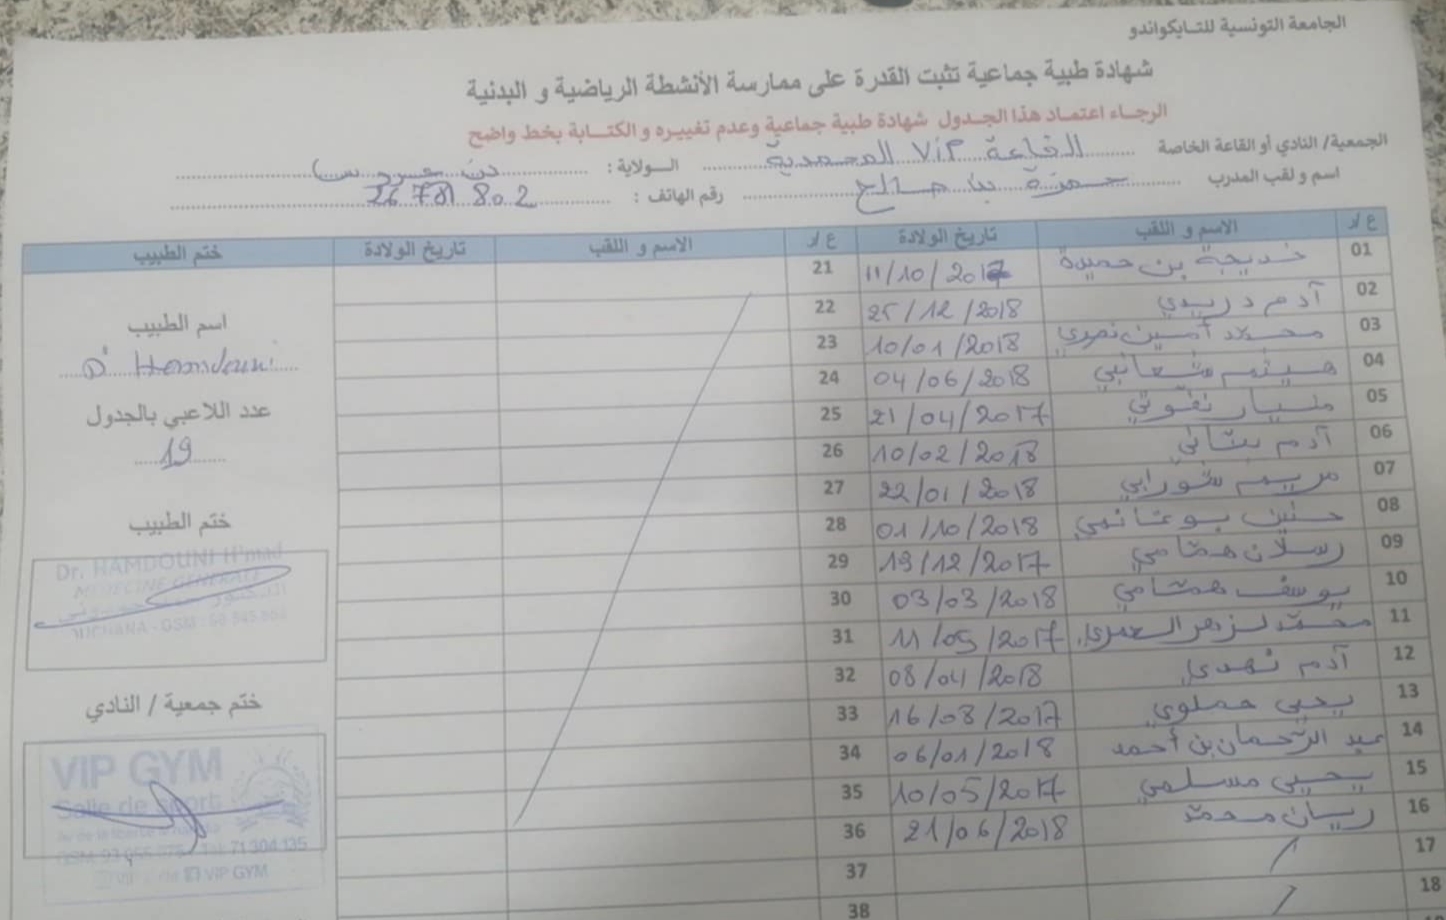 الجامعة التونسية للتايكواندو
شهادة طبية جماعية تثبت القدرة على ممارسة الأنشطة الرياضية و البدنية
الرجاء اعتماد هذا الجدول شهادة طبية جماعية وعدم تغييره و الكتابة بخط واضح
الجمعية/ النادي أو القاعة الخاصة القاعة ViP المحمدية الولاية : بن عروس
اسم و لقب المدرب حمزة بن صالح رقم الهاتف : 26 781 802
ع/ر الاسم و اللقب تاريخ الولادة ع/ر الاسم و اللقب تاريخ الولادة ختم الطبيب
01 خديجة بن حميدة 11/10/2017 21
02 آدم دريدي 25/12/2018 22
03 محمد أمين نصري 10/01/2018 23
04 هيثم 04/06/2018 24
05 21/04/2017 25
06 آدم 10/02/2018 26
07 مريم 22/01/2018 27
08 حنين بوعثانمي 01/10/2018 28
09 رسلان همامي 19/12/2017 29
10 يوسف همامي 03/03/2018 30
11 محمد لزهر العمري 11/05/2017 31
12 آدم نهدي 08/04/2018 32
13 يحيى حملاوي 16/08/2017 33
14 عبد الرحمان بن أحمد 06/01/2018 34
15 يحيى مسلمي 10/05/2017 35
16 ريان محمد 21/06/2018 36
17 37
18 38
اسم الطبيب
Dr Hamdouni
عدد اللاعبي بالجدول
19
ختم الطبيب
Dr. HAMDOUNI H'mad
MEDECINE GENERALE
ختم جمعية / النادي
VIP GYM
Salle de sport
71 304 135
VIP GYM